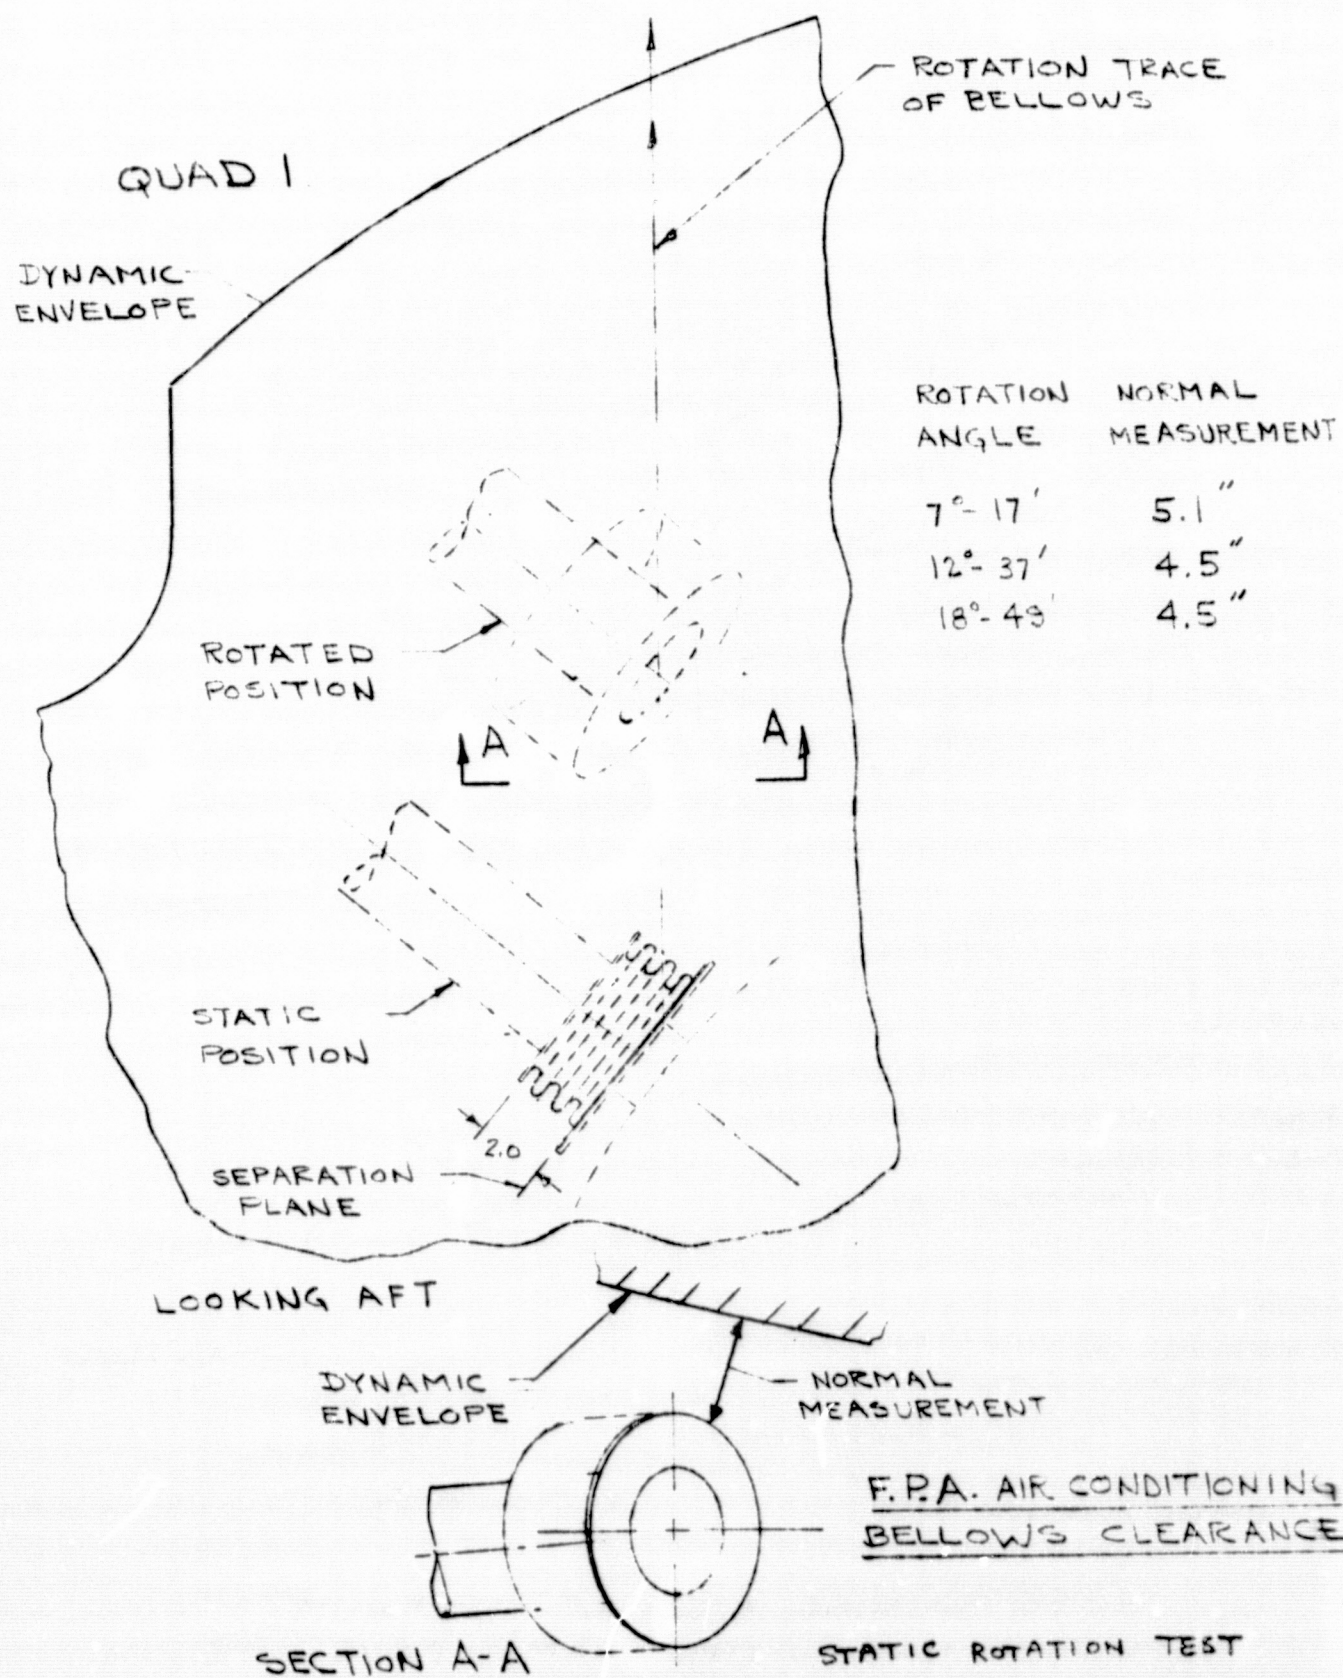 ROTATION TRACE
OF BELLOWS
QUAD 1
DYNAMIC
ENVELOPE
ROTATION NORMAL
ANGLE MEASUREMENT
7°-17' 5.1"
12°-37' 4.5"
18°-49' 4.5"
ROTATED
POSITION
A A
STATIC
POSITION
2.0
SEPARATION
PLANE
LOOKING AFT
DYNAMIC
ENVELOPE
NORMAL
MEASUREMENT
F.P.A. AIR CONDITIONING
BELLOWS CLEARANCE
SECTION A-A
STATIC ROTATION TEST